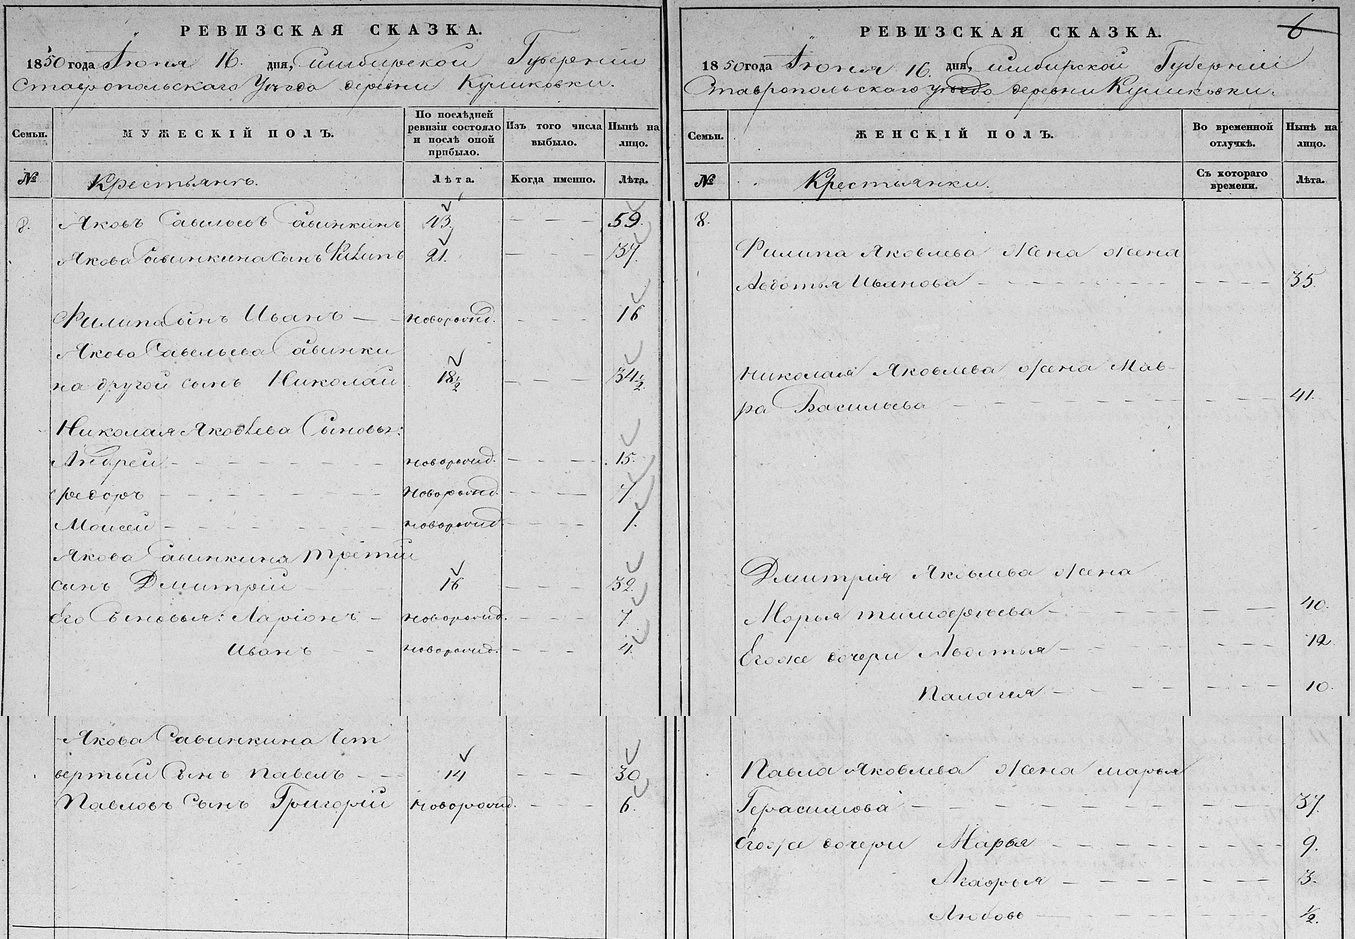 РЕВИЗСКАЯ СКАЗКА.
1850 года Іюня 16. дня, Симбирской Губерніи
Ставропольскаго Уѣзда деревни Кушковки.
Семьи.
МУЖЕСКІЙ ПОЛЪ.
По послѣдней ревизіи состояло и послѣ оной прибыло.
Изъ того числа выбыло.
Нынѣ на лицо.
№
Крестьянъ.
Лѣта.
Когда именно.
Лѣта.
8. Яковъ Савельевъ Савинкинъ 43 59.
Якова Савинкина сынъ Филипъ 21. 37.
Филипа сынъ Иванъ новорожд. 16
Якова Савельева Савинки
на другой сынъ Николай 18½ 34½
Николая Яковлева Сыновья:
Андрей новорожд. 15.
Федоръ новорожд. 7
Моисей новорожд. 1.
Якова Савинкина третій
сынъ Дмитрій 16 32.
Его Сыновья: Ларіонъ новорожд. 7
Иванъ новорожд. 4.
Якова Савинкина Чет
вертый Сынъ Павелъ 14 30
Павловъ сынъ Григорій Новорожд. 6.
6
РЕВИЗСКАЯ СКАЗКА.
1850 года Іюня 16. дня, Симбирской Губерніи
Ставропольскаго уѣзда деревни Кушковки.
Семьи.
ЖЕНСКІЙ ПОЛЪ.
Во временной отлучкѣ.
Нынѣ на лицо.
№
Крестьянки.
Съ котораго времени.
Лѣта.
8.
Филипа Яковлева Жена Жена
Авдотья Иванова 35.
Николая Яковлева жена Мав-
ра Васильева 41.
Дмитрія Яковлева жена
Марья Тимофеева 40.
Егоже дочери Авдотья 12
Палагея 10.
Павла Яковлева Жена Марья
Герасимова 37.
Егоже дочери Марья 9.
Агафья 3.
Любовь ½.